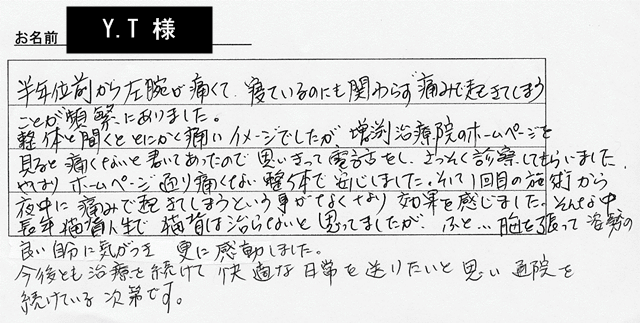 お名前 Y.T 様
半年位前から左腕が痛くて、寝ているのにも関わらず痛みで起きてしまう
ことが頻繁にありました。
整体と聞くととにかく痛いイメージでしたが 増渕治療院のホームページを
見ると痛くないと書いてあったので思いきって電話をし、さっそく診察してもらいました。
やはり ホームページ通り痛くない整体で安心しました。そして1回目の施術から
夜中に痛みで起きてしまうという事がなくなり 効果を感じました。そんな中
長年猫背人生で猫背は治らないと思ってましたが、ふと…胸を張って姿勢の
良い自分に気がつき 更に感動しました。
今後とも治療を続けて 快適な日常を送りたいと思い 通院を
続けている 次第です。